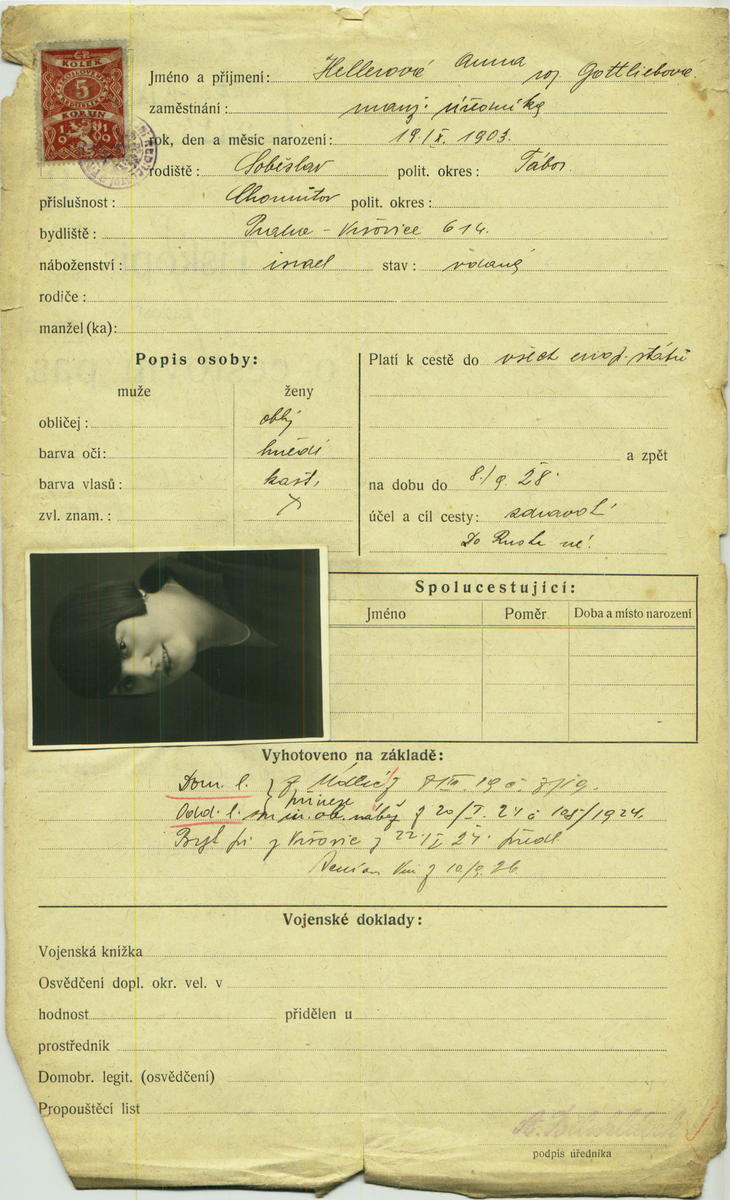 KOLEK
5
KORUN
Jméno a příjmení: Hellerová Anna roz Gottliebová
zaměstnání: manž. úředníka
rok, den a měsíc narození: 19/X. 1903.
rodiště: Soběslav polit. okres: Tábor
příslušnost: Chomutov polit. okres:
bydliště: Praha - Vršovice 614.
náboženství: israel stav: vdaná
rodiče:
manžel (ka):
Popis osoby:
muže ženy
obličej: oblý
barva očí: hnědé
barva vlasů: kašt.
zvl. znam.:
Platí k cestě do všech evrop. států
a zpět
na dobu do 8./9. 28.
účel a cíl cesty: zdravot.
Do Ruska ne!
Spolucestující:
Jméno Poměr Doba a místo narození
Vyhotoveno na základě:
Dom. l. z
Odd. l. z 20/I. 24 č 105/1924.
z Vršovic z 22/I 24. předl.
z 10/9. 26
Vojenské doklady:
Vojenská knížka
Osvědčení dopl. okr. vel. v
hodnost přidělen u
prostředník
Domobr. legit. (osvědčení)
Propouštěcí list
podpis úředníka